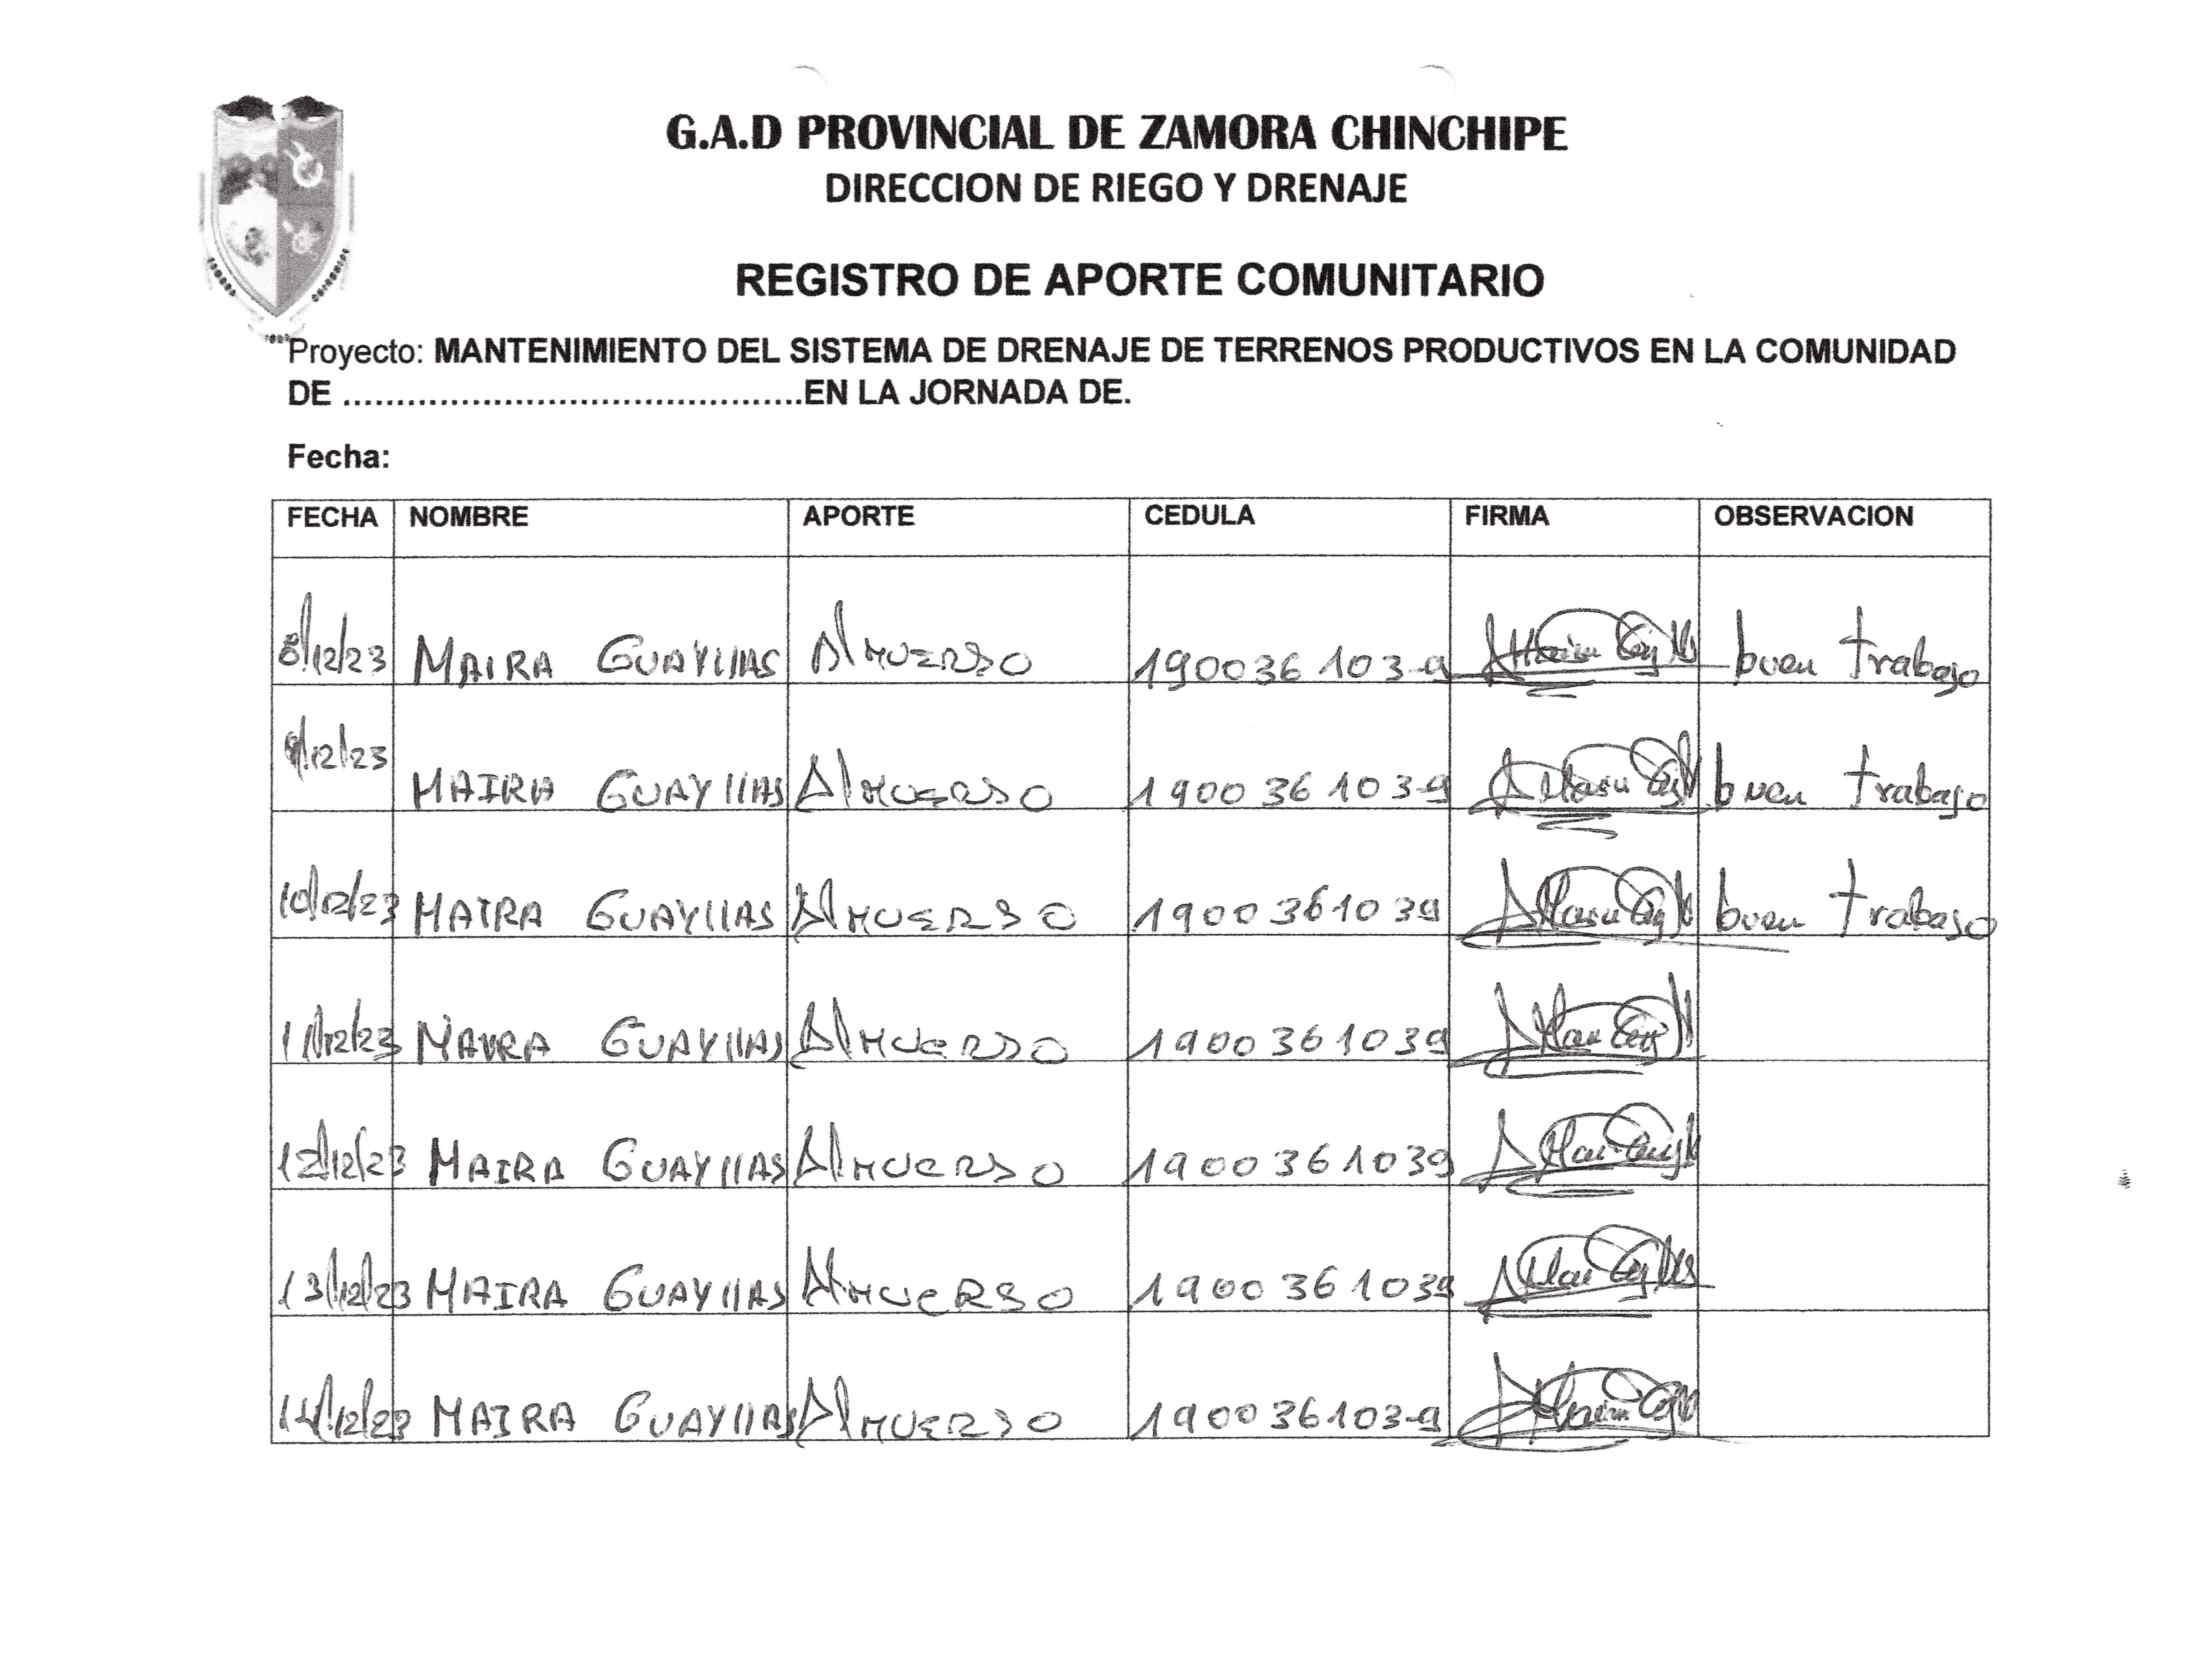 G.A.D PROVINCIAL DE ZAMORA CHINCHIPE
DIRECCION DE RIEGO Y DRENAJE
REGISTRO DE APORTE COMUNITARIO
Proyecto: MANTENIMIENTO DEL SISTEMA DE DRENAJE DE TERRENOS PRODUCTIVOS EN LA COMUNIDAD
DE ...........................................EN LA JORNADA DE.
Fecha:
FECHA NOMBRE APORTE CEDULA FIRMA OBSERVACION
8/12/23 MAIRA GUAYllAS Almuerso 190036 103-9 buen trabajo
9/12/23 MAIRA GUAYllAS Almuerso 1900 36 103-9 buen trabajo
10/12/23 MAIRA GUAYllAS Almuerso 1900361039 buen trabajo
11/12/23 MAYRA GUAYllAS Almuerso 1900 361039
12/12/23 MAIRA GUAYllAS Almuerso 1900361039
13/12/23 MAIRA GUAYllAS Almuerso 1900 361039
14/12/23 MAIRA GUAYllAS Almuerso 190036103-9